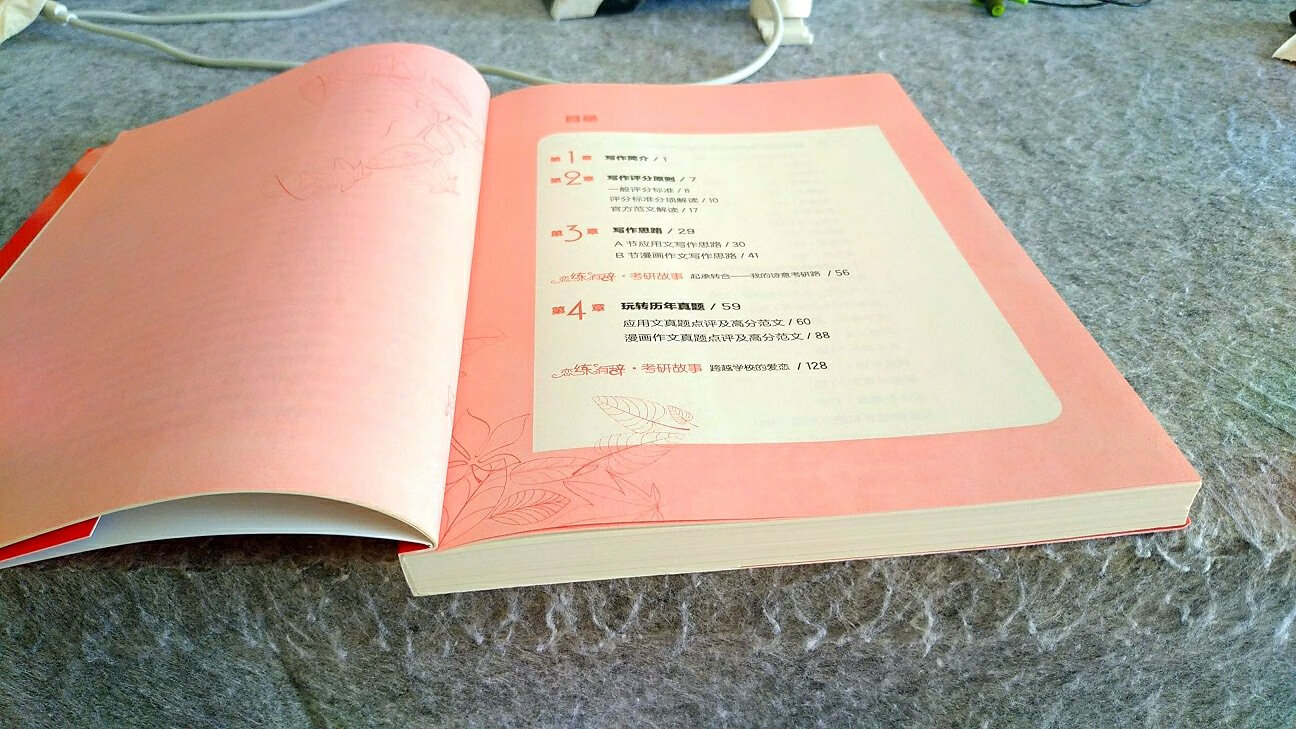 目录
第1章 写作简介 / 1
第2章 写作评分原则 / 7
一般评分标准 / 8
评分标准分项解读 / 10
官方范文解读 / 17
第3章 写作思路 / 29
A 节应用文写作思路 / 30
B 节漫画作文写作思路 / 41
恋练有辞·考研故事 起承转合——我的诗意考研路 / 56
第4章 玩转历年真题 / 59
应用文真题点评及高分范文 / 60
漫画作文真题点评及高分范文 / 88
恋练有辞·考研故事 跨越学校的爱恋 / 128